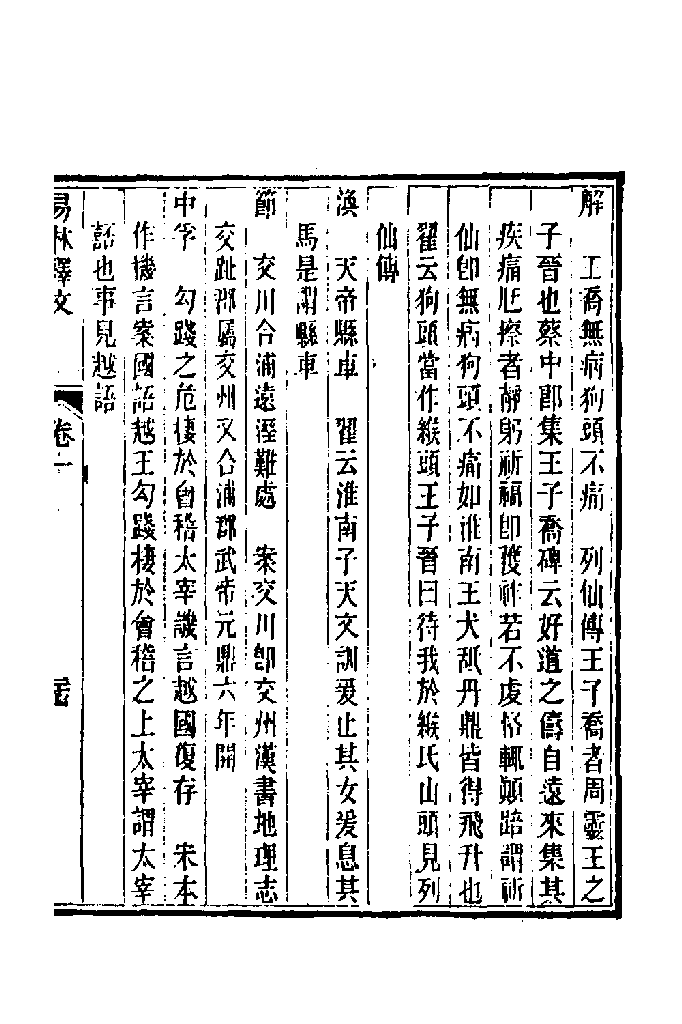 解　王喬無病狗頭不痛　列仙傳王子喬者周靈王之
子晉也蔡中郎集王子喬碑云好道之儔自遠來集其
疾痛尪瘵者靜躬祈福即獲祚若不虔恪輒顛踣謂祈
仙即無病狗頭不痛如淮南王犬舐丹鼎皆得飛升也
翟云狗頭當作緱頭王子晉曰待我於緱氏山頭見列
仙傳
渙　天帝縣車　翟云淮南子天文訓爰止其女爰息其
馬是謂縣車
節　交川合浦遠溼難處　案交川即交州漢書地理志
交趾郡屬交州又合浦郡武帝元鼎六年開
中孚　勾踐之危棲於會稽太宰譏言越國復存　宋本
作機言案國語越王勾踐棲於會稽之上太宰謂太宰
嚭也事見越語
易林釋文　卷一